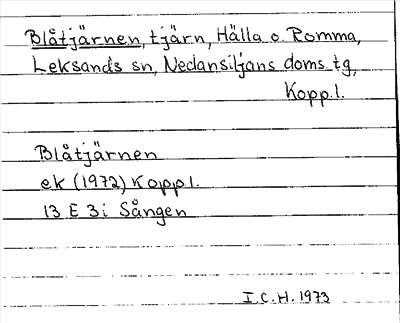 Blåtjärnen, tjärn, Hälla o. Romma,
Leksands sn, Nedansiljans doms. tg,
Kopp. l.
Blåtjärnen
ek (1972) Kopp l.
13 E 3i Sången
I. C. H. 1973